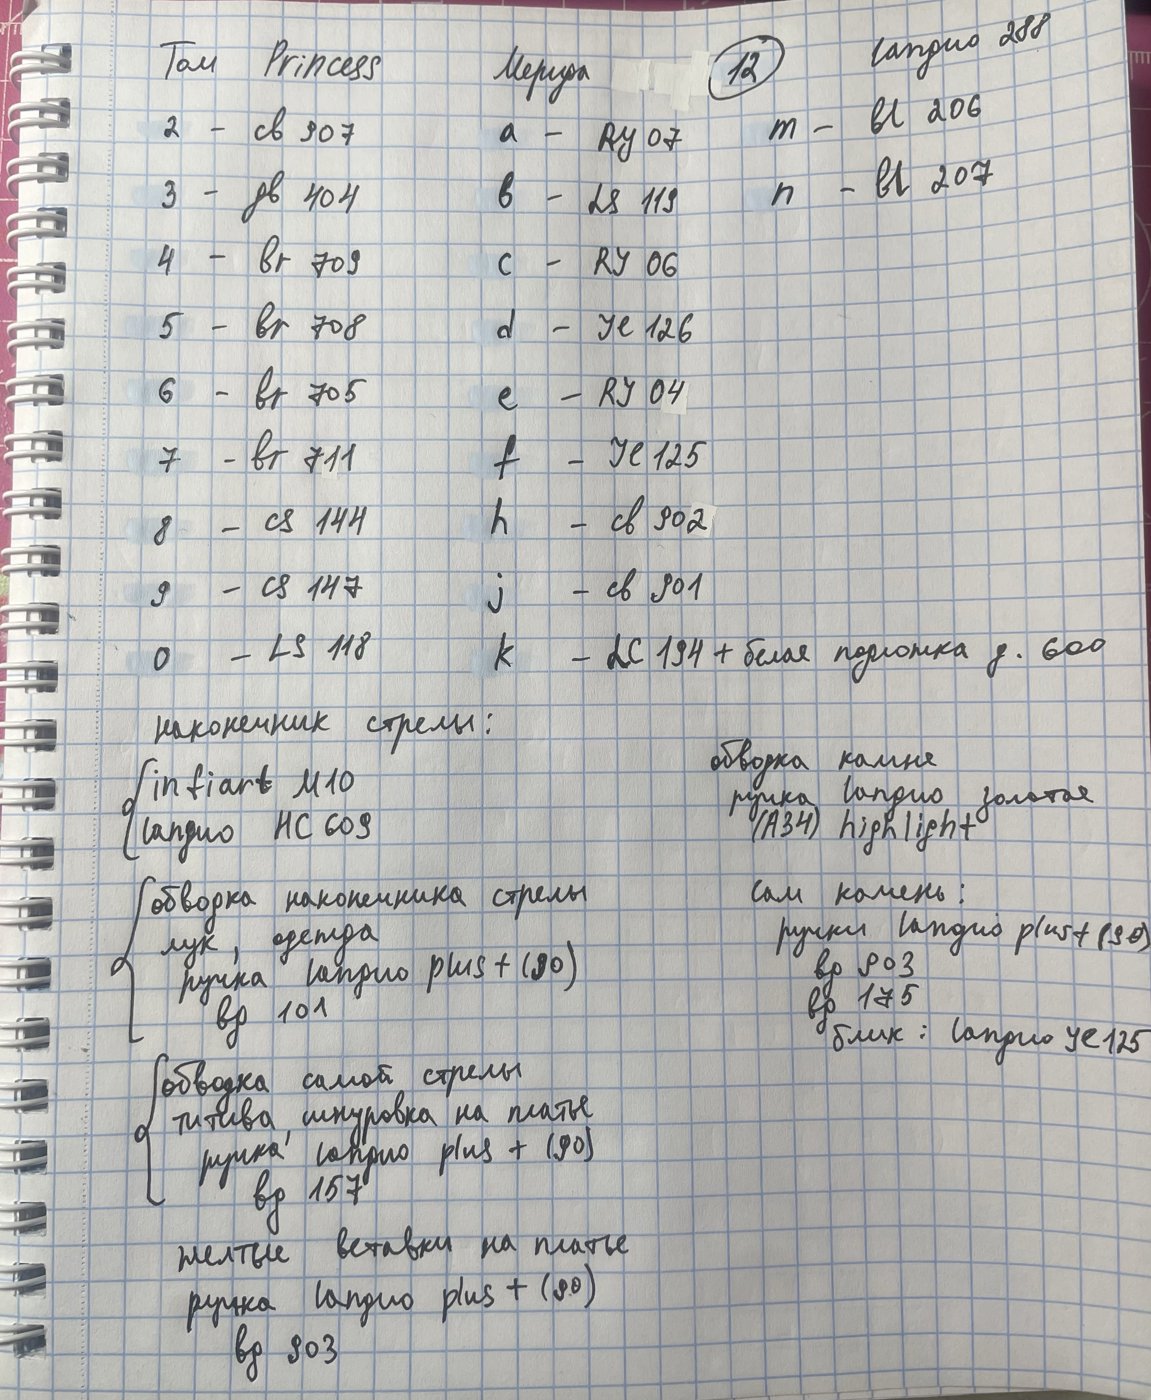 Том Princess Мерида 12 Гапдио 288
2 - св 907 a - RY 07 m - BL 206
3 - дв 404 в - LS 119 n - BL 207
4 - вг 709 c - RY 06
5 - вг 708 d - YE 126
6 - вг 705 e - RY 04
7 - вг 711 f - YE 125
8 - CS 144 h - св 902
9 - CS 147 j - св 901
0 - LS 118 k - LC 194 + белая подложка д. 600
наконечник стрелы:
infiart M10
Гапдио HC 609
обводка камня
ручка Гапдио золотая
(A34) highlight
обводка наконечника стрелы
лук, одежда
ручка Гапдио plus + (90)
вд 101
сам камень:
ручки Гапдио plus + (90)
вд 903
вд 175
блик: Гапдио YE 125
обводка самой стрелы
титива, шнуровка на платье
ручка Гапдио plus + (90)
вд 157
желтые вставки на платье
ручка Гапдио plus + (90)
вд 903